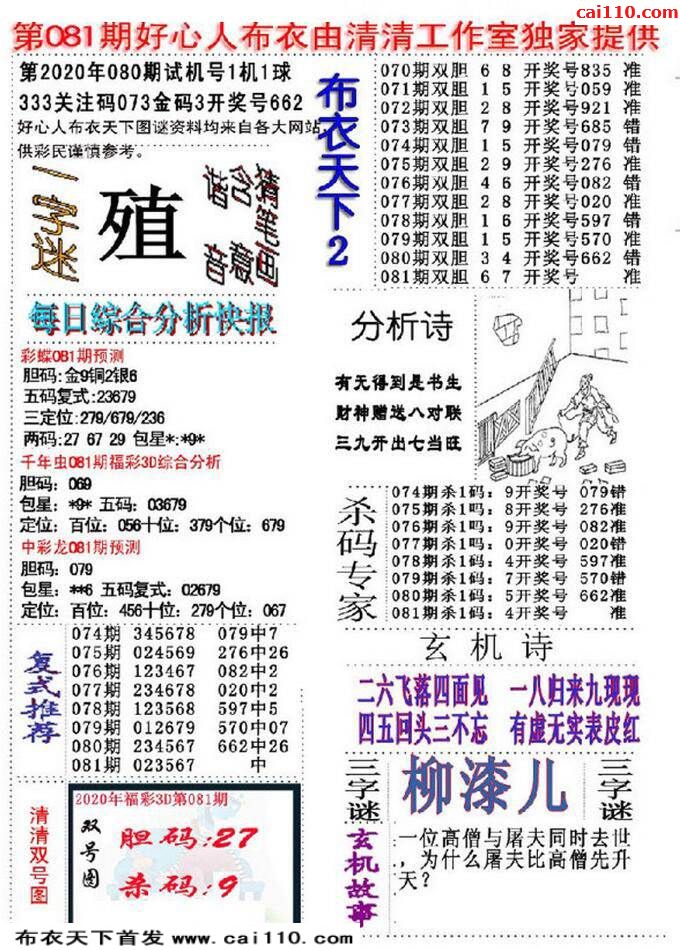 cai110.com
第081期好心人布衣由清清工作室独家提供
第2020年080期试机号1机1球
333关注码073金码3开奖号662
好心人布衣天下图谜资料均来自各大网站,
供彩民谨慎参考。
一字迷
殖
谐音
含意
猪笔画
每日综合分析快报
彩蝶081期预测
胆码:金9铜2银6
五码复式:23679
三定位:279/679/236
两码:27 67 29 包星*:*9*
千年虫081期福彩3D综合分析
胆码: 069
包星: *9* 五码: 03679
定位: 百位: 056十位: 379个位: 679
中彩龙081期预测
胆码: 079
包星: **6 五码复式: 02679
定位: 百位: 456十位: 279个位: 067
复式推荐
074期 345678 079中7
075期 024569 276中26
076期 123467 082中2
077期 234678 020中2
078期 123568 597中5
079期 012679 570中07
080期 234567 662中26
081期 023567 中
清清双号图
2020年福彩3D第081期
双号图
胆码:27
杀码:9
布衣天下2
070期双胆 6 8 开奖号835 准
071期双胆 1 5 开奖号059 准
072期双胆 2 8 开奖号921 准
073期双胆 7 9 开奖号685 错
074期双胆 1 5 开奖号079 错
075期双胆 2 9 开奖号276 准
076期双胆 4 6 开奖号082 错
077期双胆 2 8 开奖号020 准
078期双胆 1 6 开奖号597 错
079期双胆 1 5 开奖号570 准
080期双胆 3 4 开奖号662 错
081期双胆 6 7 开奖号 准
分析诗
有无得到是书生
财神赠送八对联
三九开出七当旺
杀码专家
074期杀1码: 9开奖号 079错
075期杀1吗: 8开奖号 276准
076期杀1吗: 9开奖号 082准
077期杀1吗: 0开奖号 020错
078期杀1码: 4开奖号 597准
079期杀1码: 7开奖号 570错
080期杀1码: 5开奖号 662准
081期杀1码: 4开奖号 准
玄机诗
二六飞落四面见 一八归来九现现
四五回头三不忘 有虚无实表皮红
三字谜
柳漆儿
三字谜
玄机故事
一位高僧与屠夫同时去世
,为什么屠夫比高僧先升
天?
布衣天下首发 www.cai110.com